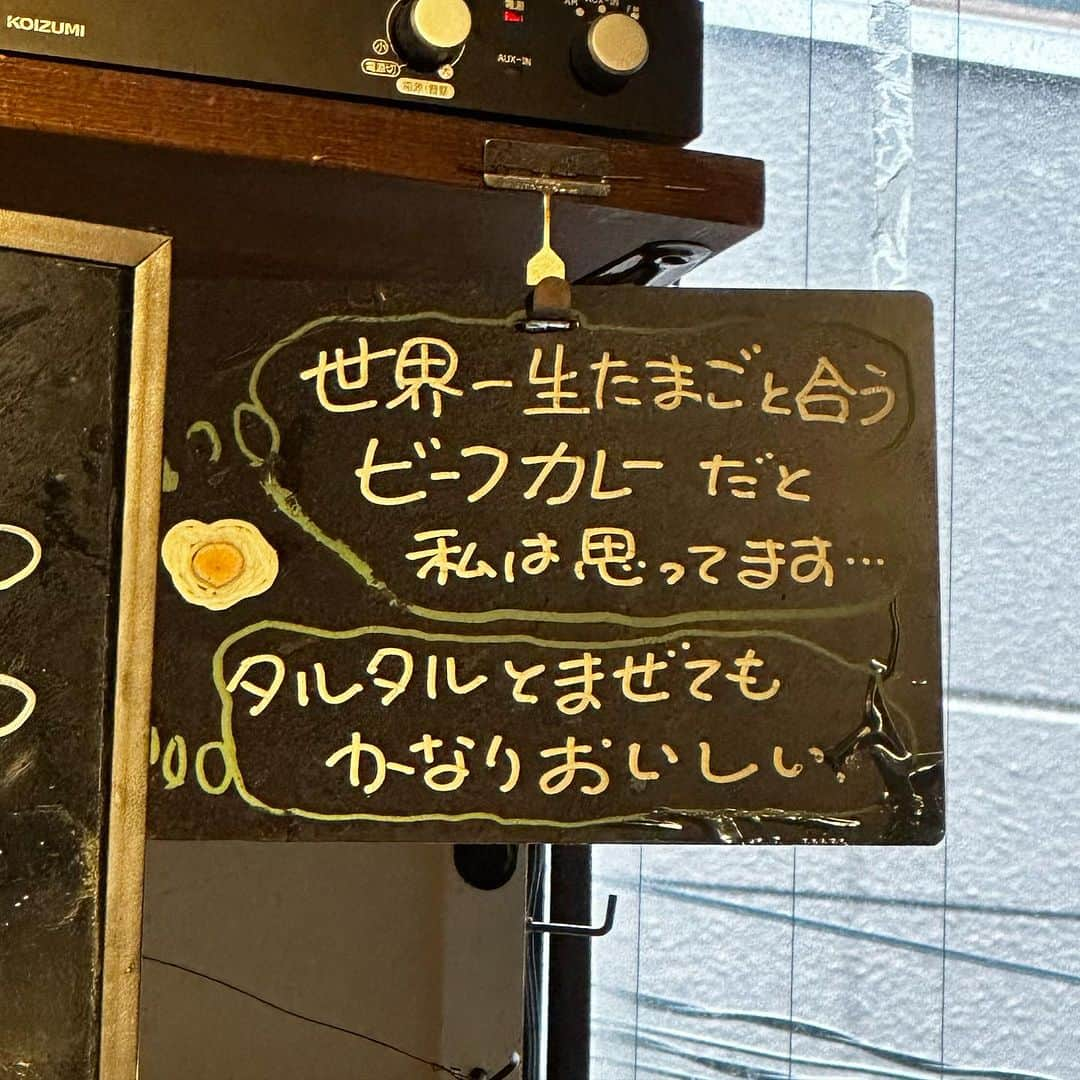 KOIZUMI
小
電源切
大
電源/音量
AUX-IN
AM
AUX-IN
FM
世界一生たまごと合う
ビーフカレーだと
私は思ってます…
タルタルとまぜても
かーなりおいしい。